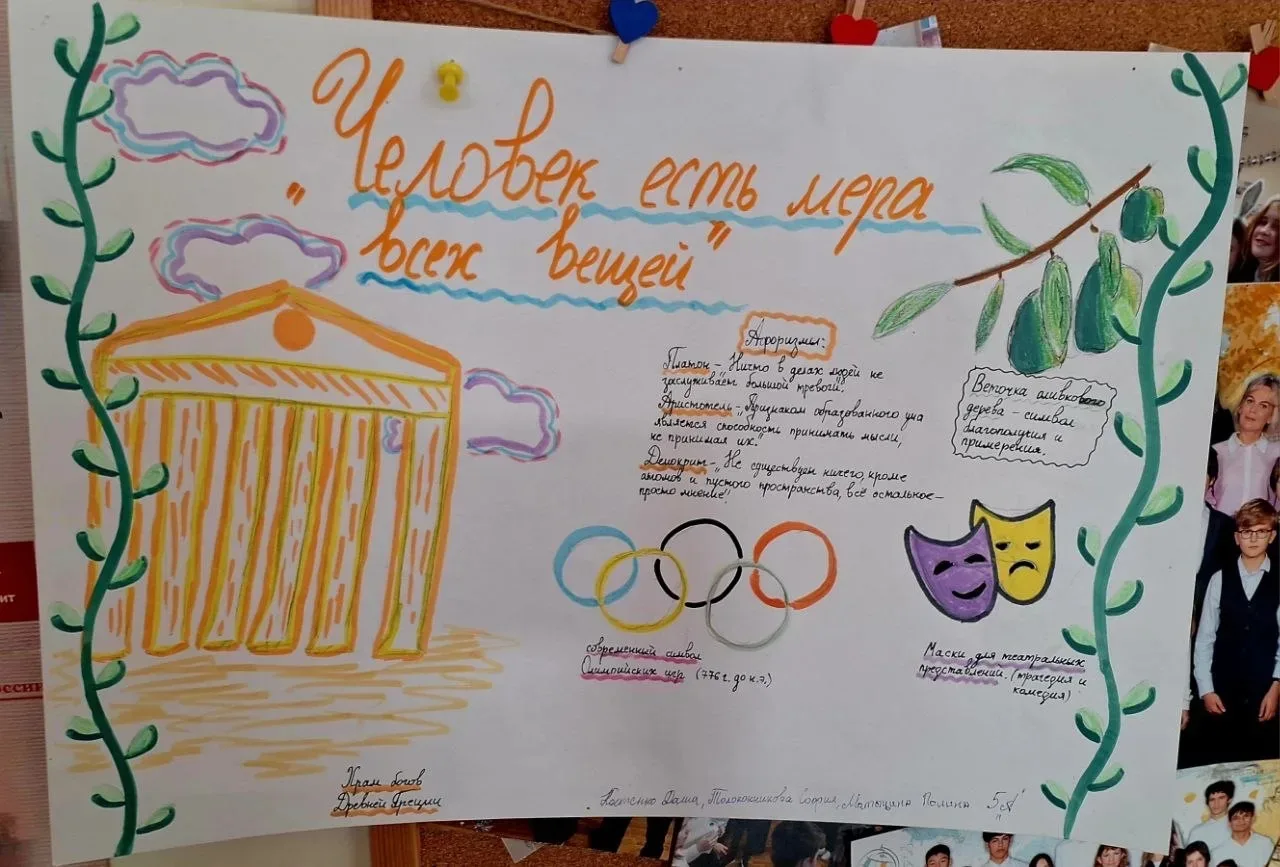 „Человек есть мера
всех вещей"
Афоризмы:
Платон – „Ничто в делах людей не
заслуживает большой тревоги".
Аристотель – „Признаком образованного ума
является способность принимать мысли,
не принимая их."
Демокрит – „Не существует ничего, кроме
атомов и пустого пространства, всё остальное –
просто мнение".
Веточка оливкового
дерева – символ
благополучия и
примерения.
современный символ
Олимпийских игр (776 г. до н.э.)
Маски для театральных
представлений. (трагедия и
комедия)
Храм богов
Древней Греции
Даша, Толоконникова София, Полина 5 „А"
ит
оссии